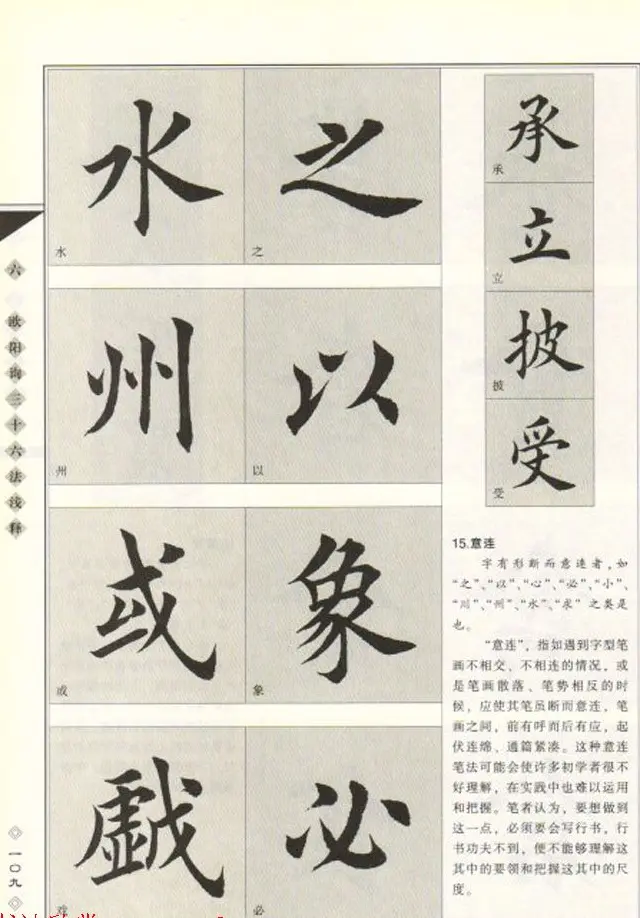 六 欧阳询三十六法浅释
一〇九
水 之
水 之
州 以
州 以
或 象
或 象
戲 必
戏 必
承
承
立
立
披
披
受
受
15.意连
字有形断而意连者，如
“之”、“以”、“心”、“必”、“小”、
“川”、“州”、“水”、“求”之类是
也。
“意连”，指如遇到字型笔
画不相交、不相连的情况，或
是笔画散落、笔势相反的时
候，应使其笔虽断而意连，笔
画之间，前有呼而后有应，起
伏连绵、通篇紧凑。这种意连
笔法可能会使许多初学者很不
好理解，在实践中也难以运用
和把握。笔者认为，要想做到
这一点，必须要会写行书，行
书功夫不到，便不能够理解这
其中的要领和把握这其中的尺
度。